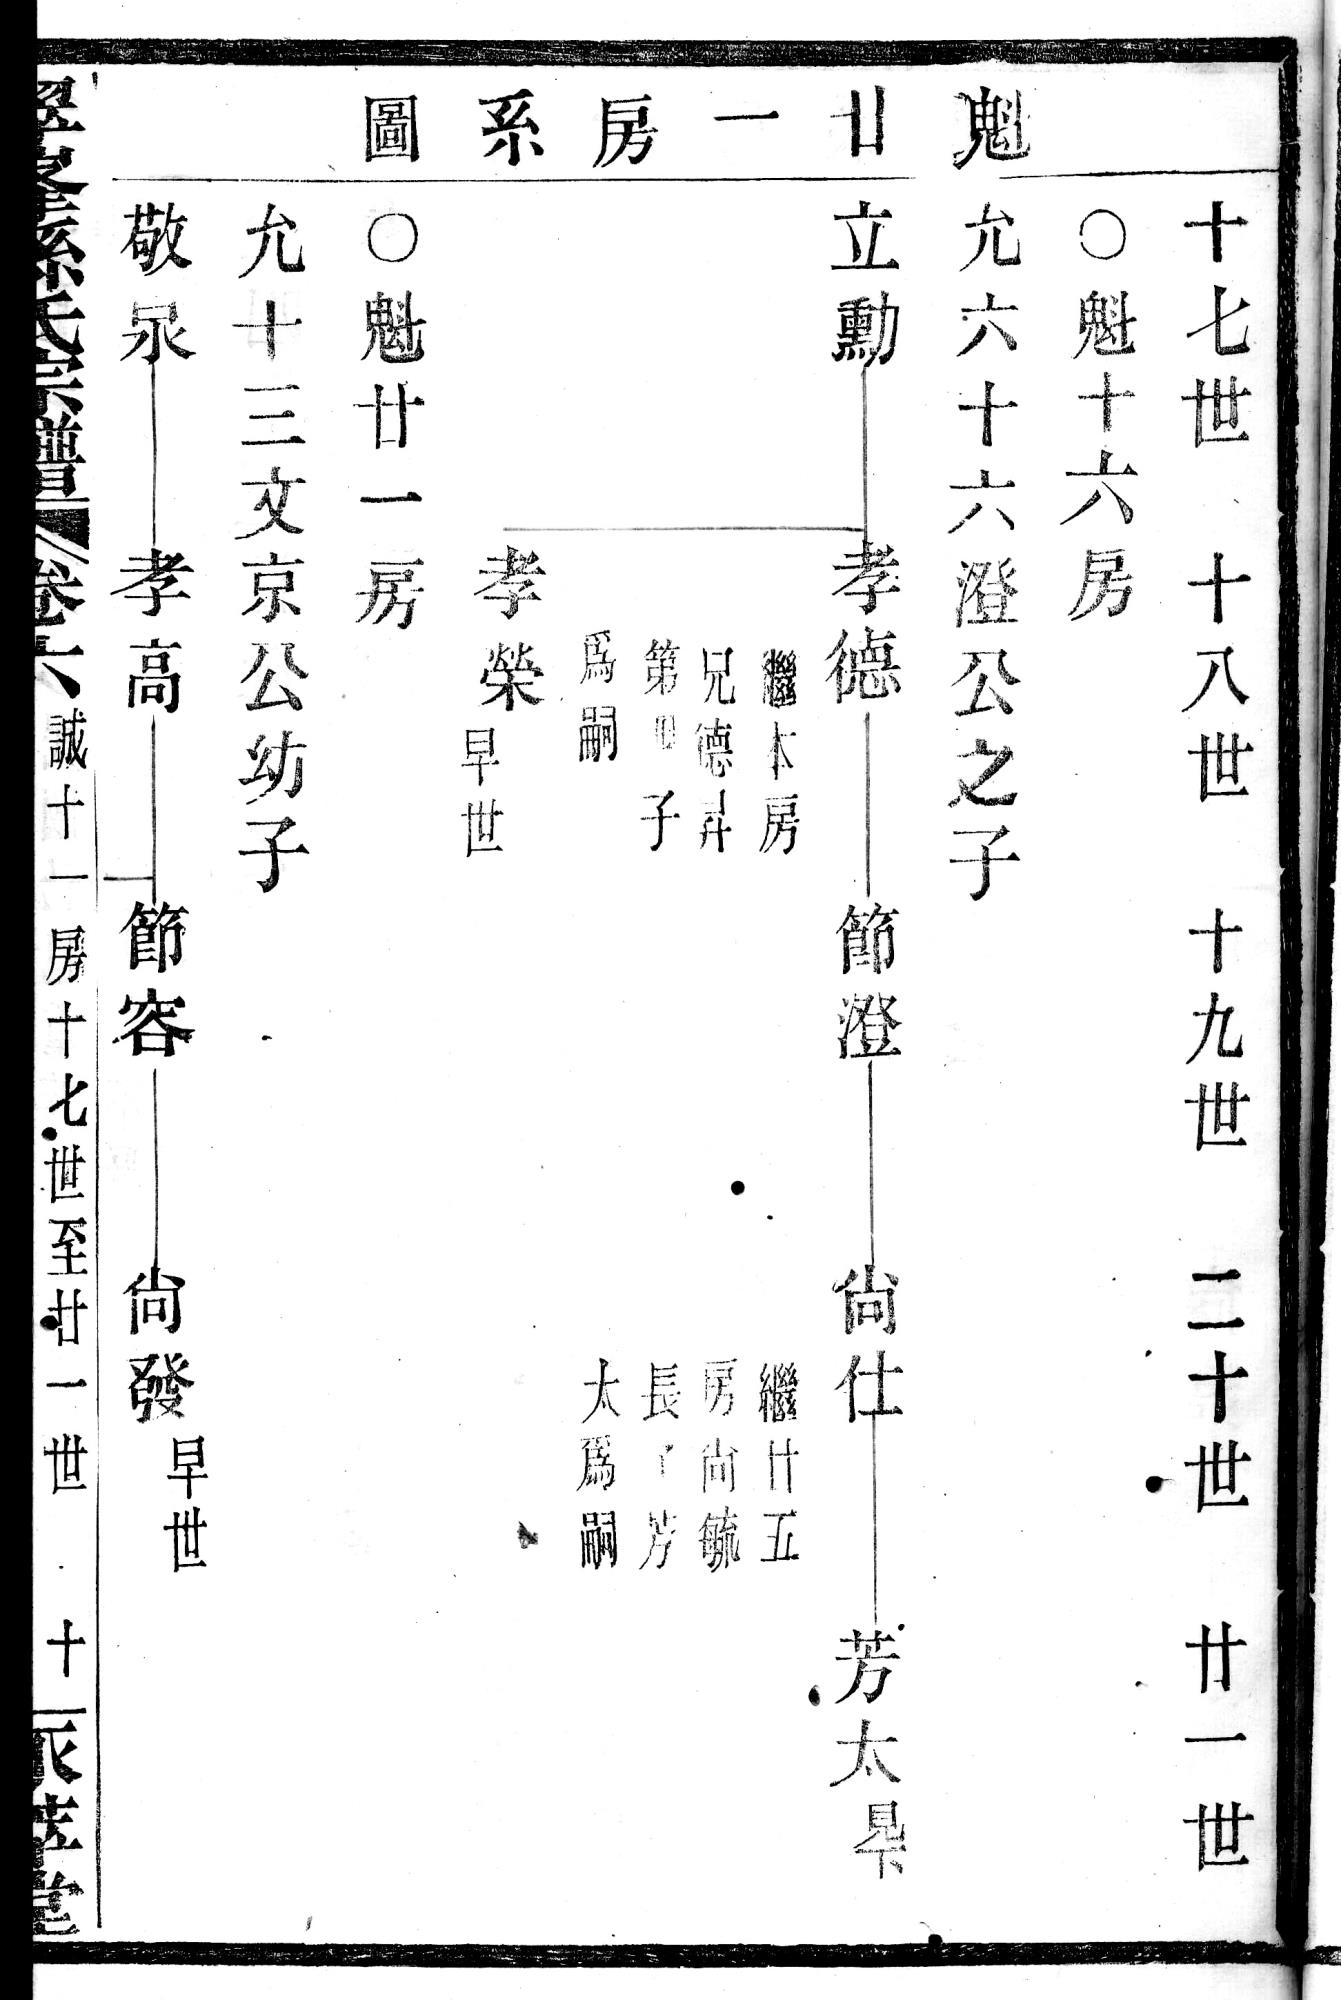 魁廿一房系圖
十七世 十八世 十九世 二十世 廿一世
○魁十六房
允六十六澄公之子
立勳 孝德 節澄 尙仕 芳太 見下
繼本房
兄德昇
第 子
爲嗣
繼廿五
房尙毓
長子芳
太爲嗣
孝榮 早世
○魁廿一房
允十三文京公幼子
敬泉 孝高 節容 尙發 早世
孫氏宗譜 卷六 誠十一房十七世至廿一世 十 堂